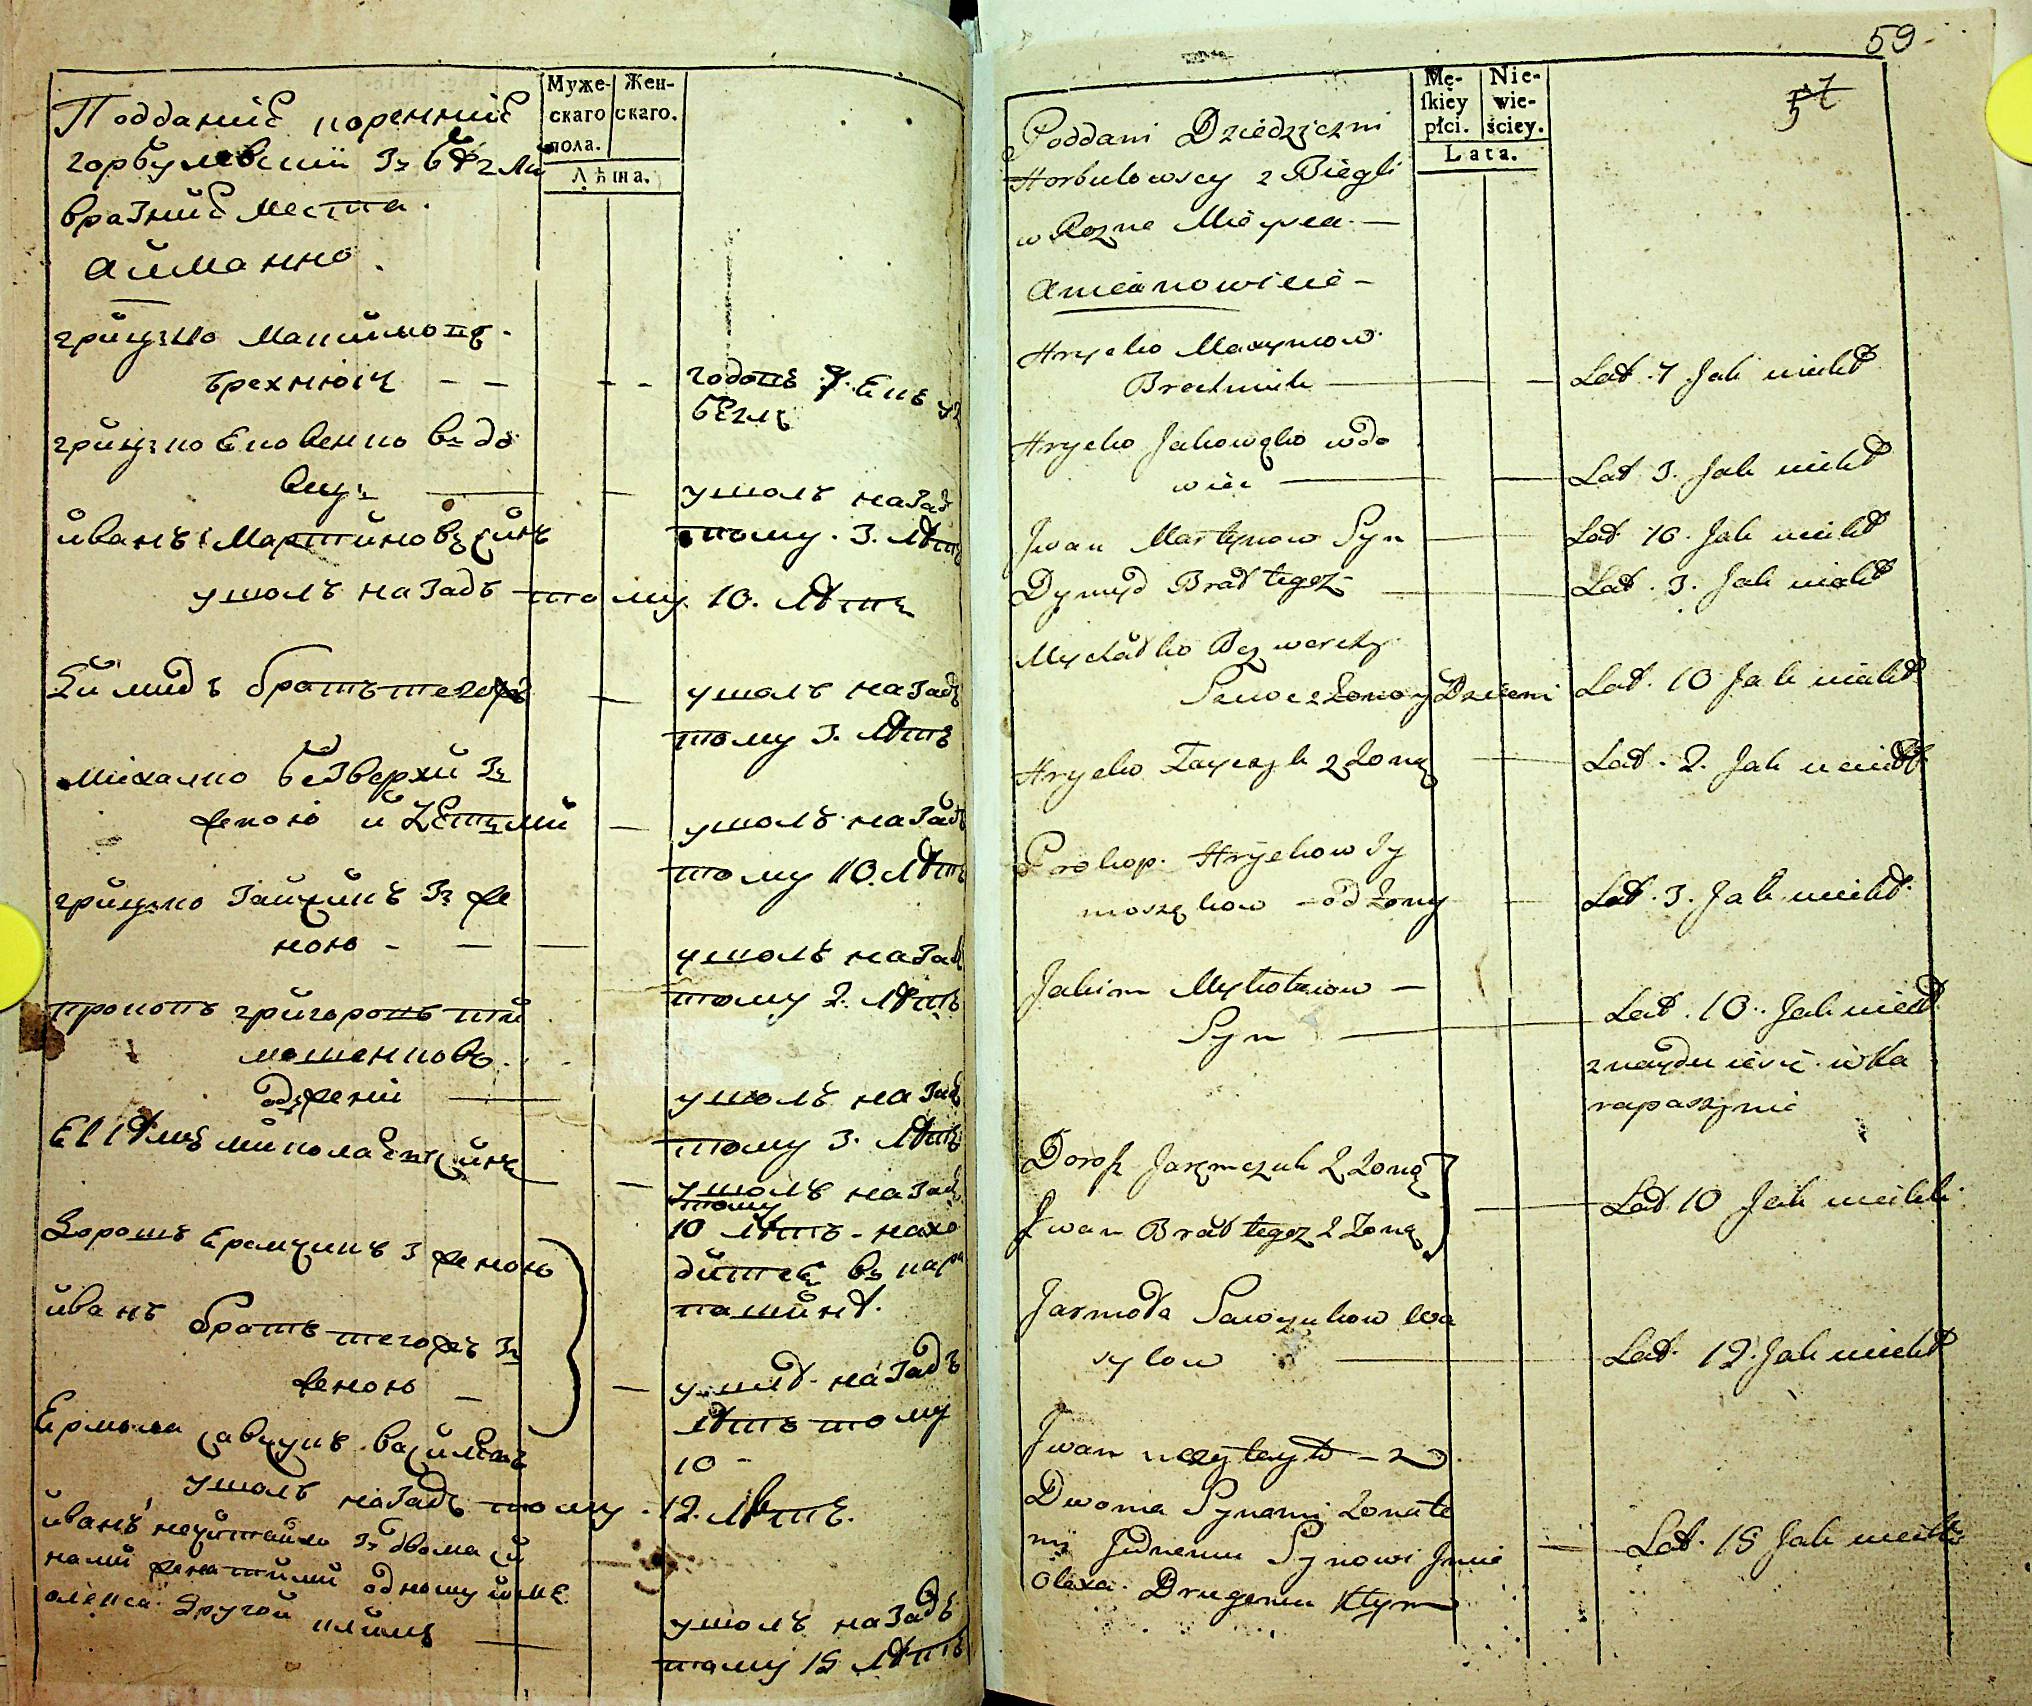 Муже-
скаго
пола.
Жен-
скаго.
Лѣта.
Подданіе коренніе
горбулевскіи Зъ бѣгли
вразніе места.
аймянно.
грицко Максимовъ
брехнюк
годовъ 7. Екъ
бѣглъ
грицко Яковенко въдо
вец
ушолъ назадъ
тому. 3. лѣтъ
иванъ Мартиновъ синъ
ушолъ назадъ тому 10. лѣтъ
Димидъ братъ тогожъ
ушолъ назадъ
тому 3. лѣтъ
михалко безверхи Зъ
женою и дѣтми
ушолъ назадъ
тому 10. лѣтъ
грицко Зайчикъ Зъ же
ною
ушолъ назадъ
тому 2. лѣтъ
прокопъ григоровъ
мошенковъ
одъжени
ушолъ назадъ
тому 3. лѣтъ
миколаевъ синъ
ушолъ назадъ
тому
10 лѣтъ нахо
дитсѧ въ кара
пашинѣ.
Дорошъ Еремчукъ З женою
иванъ братъ тогожъ Зъ
женою
назадъ
лѣтъ тому
10
Ермола савчукъ василевъ
ушолъ назадъ тому 12. лѣтъ.
иванъ нечитайло Зъ двома си
нами женатими одному имѧ
олекса другой климъ
ушолъ назадъ
тому 15 лѣтъ
59
57
Mę-
skiey
płci.
Nie-
wie-
ściey.
Lata.
Poddani Dziedziczni
Horbulowscy z Biegli
w Rozne Mieysca
Amianowicie
Hrycko Maxymow
Brechniuk
Lat 7 Jak uciekł
Hrycko Jakowęko wdo
wiec
Lat 3. Jak uciekł
Jwan Martynow Syn
Lat 10. Jak uciekł
Dymyd Brat tegoz
Lat. 3. Jak uciekł
Mychałko Bezwerchy
z Zoną y Dziecmi
Lat. 10 Jak uciekł
Hrycko Zayczyk z Zoną
Lat. 2. Jak uciekł
Prokop. Hryckow Sy
moszękow od Zony
Lat. 3. Jak uciekł
Jakim Mykołaiow
Syn
Lat. 10. Jak uciekł
znayduie się w Ka
rapaszynie
Dorosz Jaremczuk z Zoną
Jwan Brat tegoz z Zoną
Lat 10 Jak uciekli
Jarmoła Sawczukow Wa
sylow
Lat. 12. Jak uciekł
Jwan z
Dwoma Synami Zonate
mi Jednemu Synowi Jmie
Olexa. Drugiemu Klym
Lat. 15 Jak uciekł